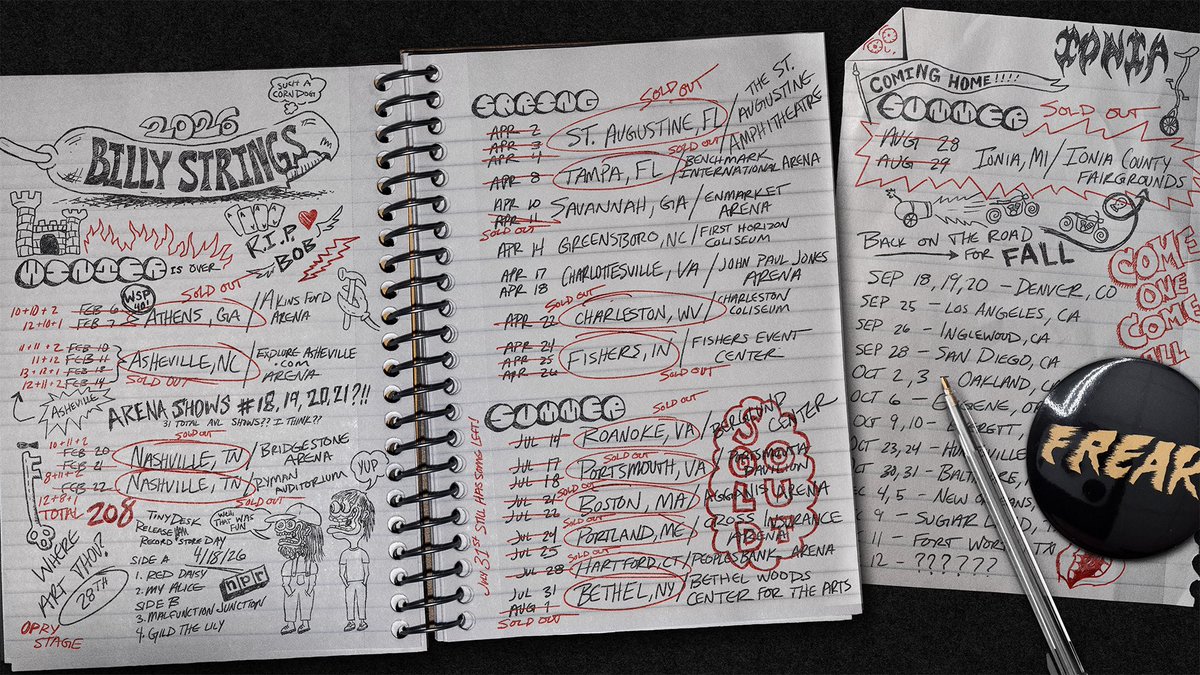 SUCH A
CORNDOG!
2026
BILLY STRINGS
R.I.P
BOB
WINTER IS OVER!
WSP
40
SOLD OUT
10+10+2 FEB 6
12+10+1 FEB 7
ATHENS, GA / AKINS FORD
ARENA
11+11+2 FEB 10
11+12 FEB 11
13+12+1 FEB 13
12+11+2 FEB 14
ASHEVILLE, NC / EXPLORE ASHEVILLE
.COM
ARENA
SOLD OUT
ASHEVILLE
ARENA SHOWS #18, 19, 20, 21?!!
31 TOTAL AVL SHOWS?? I THINK??
SOLD OUT
10+11+2 FEB 20
FEB 21
NASHVILLE, TN / BRIDGESTONE
ARENA
FEB 22 NASHVILLE, TN / RYMAN
AUDITORIUM
SOLD OUT
TOTAL 208
YUP
WELL THAT WAS
FUN
WHERE
ART THOU?
28TH
OPRY
STAGE
TINY DESK
RELEASE!!!
RECORD STORE DAY
4/18/26
SIDE A
1. RED DAISY
2. MY ALICE
SIDE B
3. MALFUNCTION JUNCTION
4. GILD THE LILY
npr
SPRING
SOLD OUT
APR 2
APR 3
APR 4
ST. AUGUSTINE, FL / THE ST.
AUGUSTINE
AMPHITHEATRE
SOLD OUT
APR 8 TAMPA, FL / BENCHMARK
INTERNATIONAL ARENA
APR 10
APR 11
SAVANNAH, GA / ENMARKET
ARENA
SOLD OUT
APR 14 GREENSBORO, NC / FIRST HORIZON
COLISEUM
APR 17
APR 18
CHARLOTTESVILLE, VA / JOHN PAUL JONES
ARENA
SOLD OUT
APR 22 CHARLESTON, WV / CHARLESTON
COLISEUM
APR 24
APR 25
APR 26
FISHERS, IN / FISHERS EVENT
CENTER
SOLD OUT
SUMMER
SOLD OUT
JUL 14 ROANOKE, VA / BERGLUND
CENTER
SOLD OUT
JUL 17
JUL 18
PORTSMOUTH, VA
PAVILION
SOLD OUT
JUL 21
JUL 22
BOSTON, MA / AGGANIS ARENA
SOLD OUT
JUL 24
JUL 25
PORTLAND, ME / CROSS INSURANCE
ARENA
SOLD OUT
JUL 28 HARTFORD, CT / PEOPLESBANK ARENA
JUL 31
AUG 1
BETHEL, NY / BETHEL WOODS
CENTER FOR THE ARTS
SOLD OUT
JULY 31ST STILL HAS SOME LEFT!
SOLD
OUT
IONIA
COMING HOME!!!!
SUMMER
SOLD OUT
AUG 28
AUG 29
IONIA, MI / IONIA COUNTY
FAIRGROUNDS
BACK ON THE ROAD
FOR FALL
COME
ONE
COME
ALL
SEP 18, 19, 20 - DENVER, CO
SEP 25 - LOS ANGELES, CA
SEP 26 - INGLEWOOD, CA
SEP 28 - SAN DIEGO, CA
OCT 2, 3 - OAKLAND,
OCT 6 -
OCT 9, 10 -
OCT 23, 24 -
30, 31 -
4, 5 - NEW
9 - SUGAR LAND, TX
11 - FORT WORTH, TX
12 - ??????
FREAK